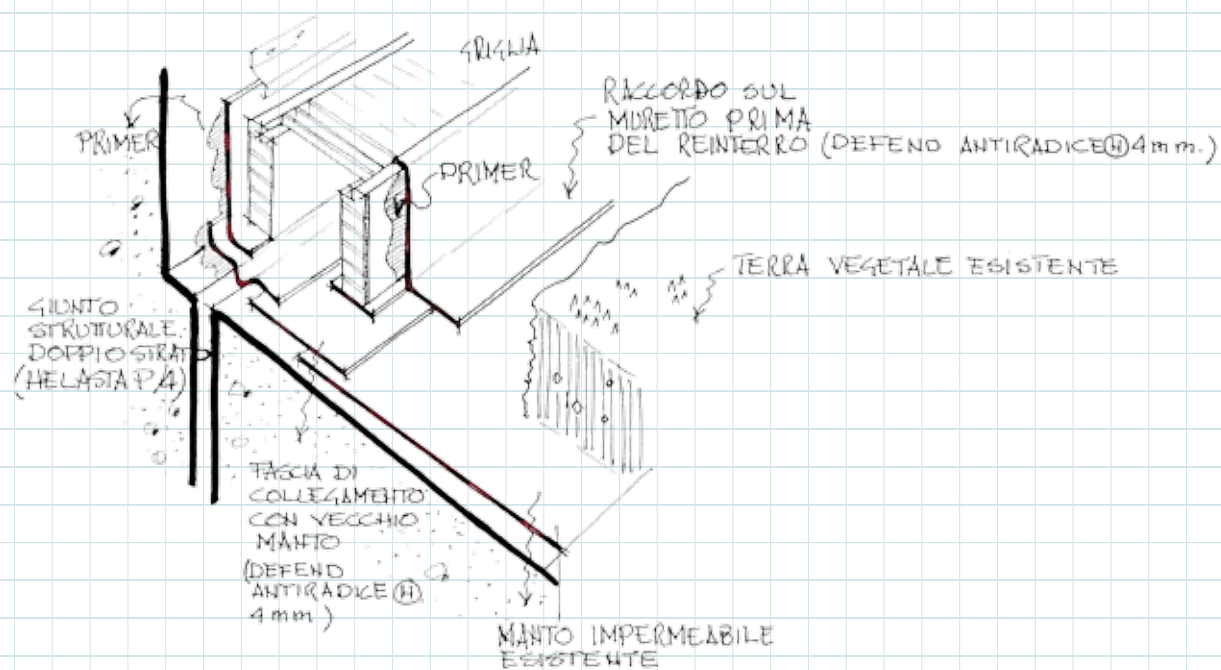 GRIGLIA
PRIMER
RACCORDO SUL
MURETTO PRIMA
DEL REINTERRO (DEFEND ANTIRADICE Ⓗ 4 mm.)
PRIMER
TERRA VEGETALE ESISTENTE
GIUNTO
STRUTTURALE
DOPPIO STRATO
(HELASTA P/4)
FASCIA DI
COLLEGAMENTO
CON VECCHIO
MANTO
(DEFEND
ANTIRADICE Ⓗ
4 mm)
MANTO IMPERMEABILE
ESISTENTE